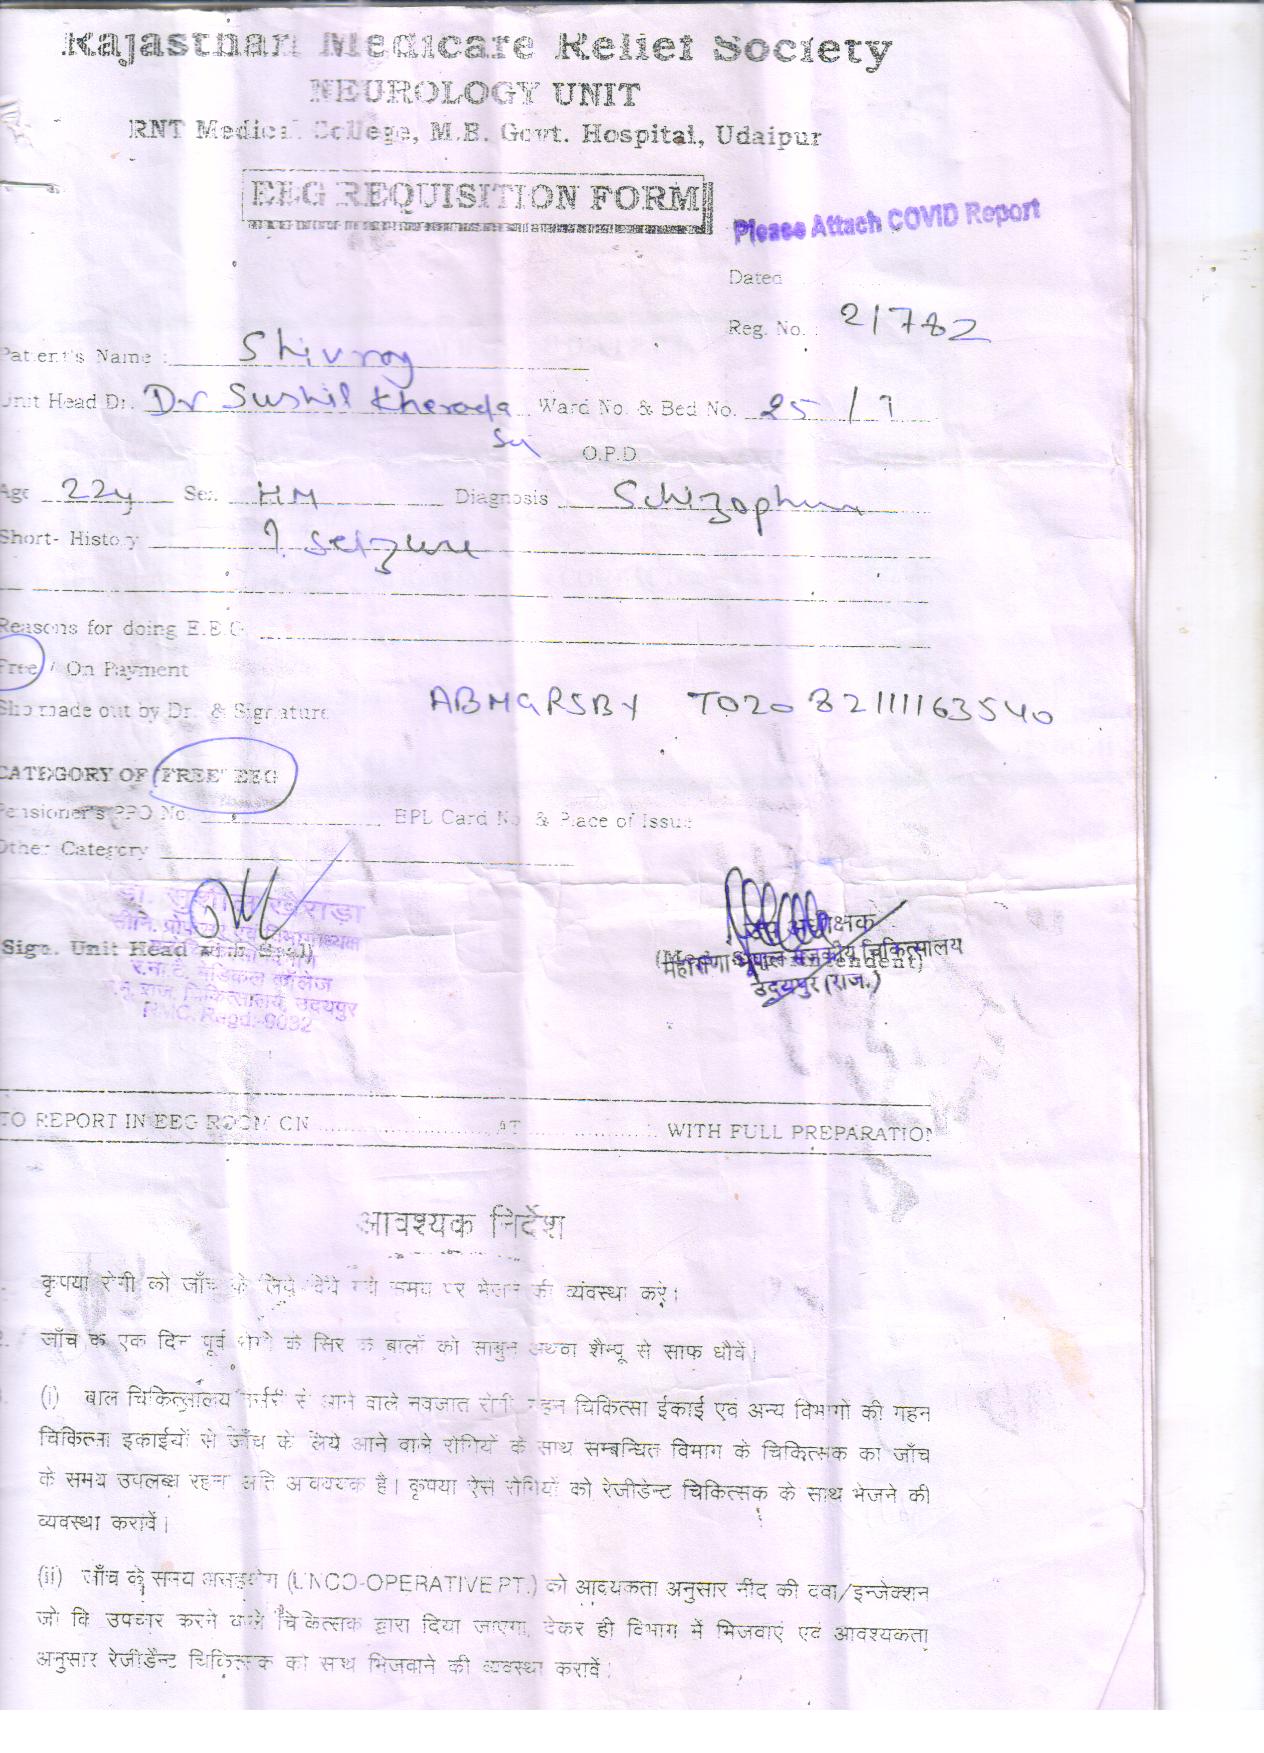 Rajasthan Medicare Relief Society
NEUROLOGY UNIT
RNT Medical College, M.B. Govt. Hospital, Udaipur
EEG REQUISITION FORM
Please Attach COVID Report
Dated
Reg. No. : 21782
Patient's Name : Shivraj
Unit Head Dr. Dr Sushil Kherada Ward No. & Bed No. 25 / 9
Sir
O.P.D.
Age 22y Sex HM Diagnosis Schizophren
Short- History ? Seizure
Reasons for doing E.E.G
Free / On Payment
made out by Dr. & Signature ABMGRSBY T02082111163540
CATEGORY OF 'FREE' EEG
Pensioner's PPO No. BPL Card No & Place of Issue
Other Category
डॉ. सुशील खेराड़ा
सीनि. प्रोफेसर एवं विभागाध्यक्ष
Sign. Unit Head
र.ना.टे. मेडिकल कॉलेज
म.भू. राज. चिकित्सालय, उदयपुर
RMC. Regd.-9032
उप अधीक्षक
महाराणा भूपाल राजकीय चिकित्सालय
उदयपुर (राज.)
TO REPORT IN EEG ROOM ON ........................ AT .................. WITH FULL PREPARATION
आवश्यक निर्देश
कृपया रोगी को जाँच के लिये दिये गये समय पर भेजने की व्यंवस्था करे।
जाँच के एक दिन पूर्व रोगी के सिर के बालों को साबुन अथवा शैम्पू से साफ धौवें।
(i) बाल चिकित्सालय नर्सरी से आने वाले नवजात रोगी, गहन चिकित्सा ईकाई एवं अन्य विभागों की गहन
चिकित्सा इकाईयों से जाँच के लिये आने वाले रोगियों के साथ सम्बन्धित विभाग के चिकित्सक का जाँच
के समय उपलब्ध रहना अति आवश्यक है। कृपया ऐसे रोगियों को रेजीडेन्ट चिकित्सक के साथ भेजने की
व्यवस्था करावें।
(ii) जाँच के समय असहयोग (UNCO-OPERATIVE PT.) को आवयकता अनुसार नींद की दवा/इन्जेक्शन
जो कि उपचार करने वाले चिकित्सक द्वारा दिया जाएगा, देकर ही विभाग में भिजवाएं एवं आवश्यकता
अनुसार रेजीडेंन्ट चिकित्सक को साथ भिजवाने की व्यवस्था करावें।